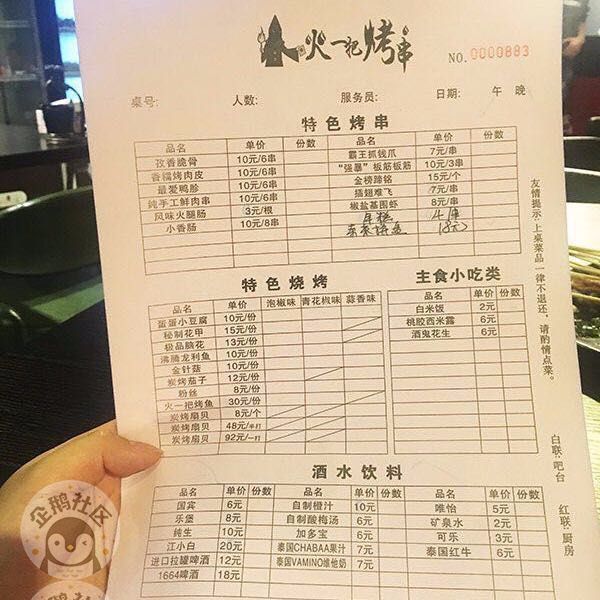 春火一把烤串
NO. 0000883
桌号: 人数: 服务员: 日期: 午 晚
特色烤串
品名 单价 份数 品名 单价 份数
孜香脆骨 10元/6串 霸王抓钱爪 7元/串
香糯烤肉皮 10元/6串 “强暴”板筋板筋 10元/3串
最爱鸭胗 10元/6串 金榜蹄铭 15元/个
纯手工鲜肉串 10元/6串 插翅难飞 7元/串
风味火腿肠 3元/根 椒盐基围虾 8元/串
小香肠 10元/8串 年糕 4/串
18元
特色烧烤
品名 单价 泡椒味 青花椒味 蒜香味
蛋蛋小豆腐 10元/份
秘制花甲 15元/份
极品脑花 13元/份
沸腾龙利鱼 10元/份
金针菇 10元/份
炭烤茄子 12元/份
粉丝 8元/份
火一把烤鱼 30元/份
炭烤扇贝 8元/个
炭烤扇贝 48元/半打
炭烤扇贝 92元/一打
主食小吃类
品名 单价 份数
白米饭 2元
桃胶西米露 6元
酒鬼花生 6元
酒水饮料
品名 单价 份数 品名 单价 份数 品名 单价 份数
国宾 6元 自制橙汁 10元 唯怡 5元
乐堡 8元 自制酸梅汤 6元 矿泉水 2元
纯生 10元 加多宝 6元 可乐 3元
江小白 20元 泰国CHABAA果汁 7元 泰国红牛 6元
进口拉罐啤酒 12元 泰国VAMINO维他奶 7元
1664啤酒 18元
友情提示:上桌菜品一律不退还,请酌情点菜。
白联:吧台
红联:厨房
企鹅社区